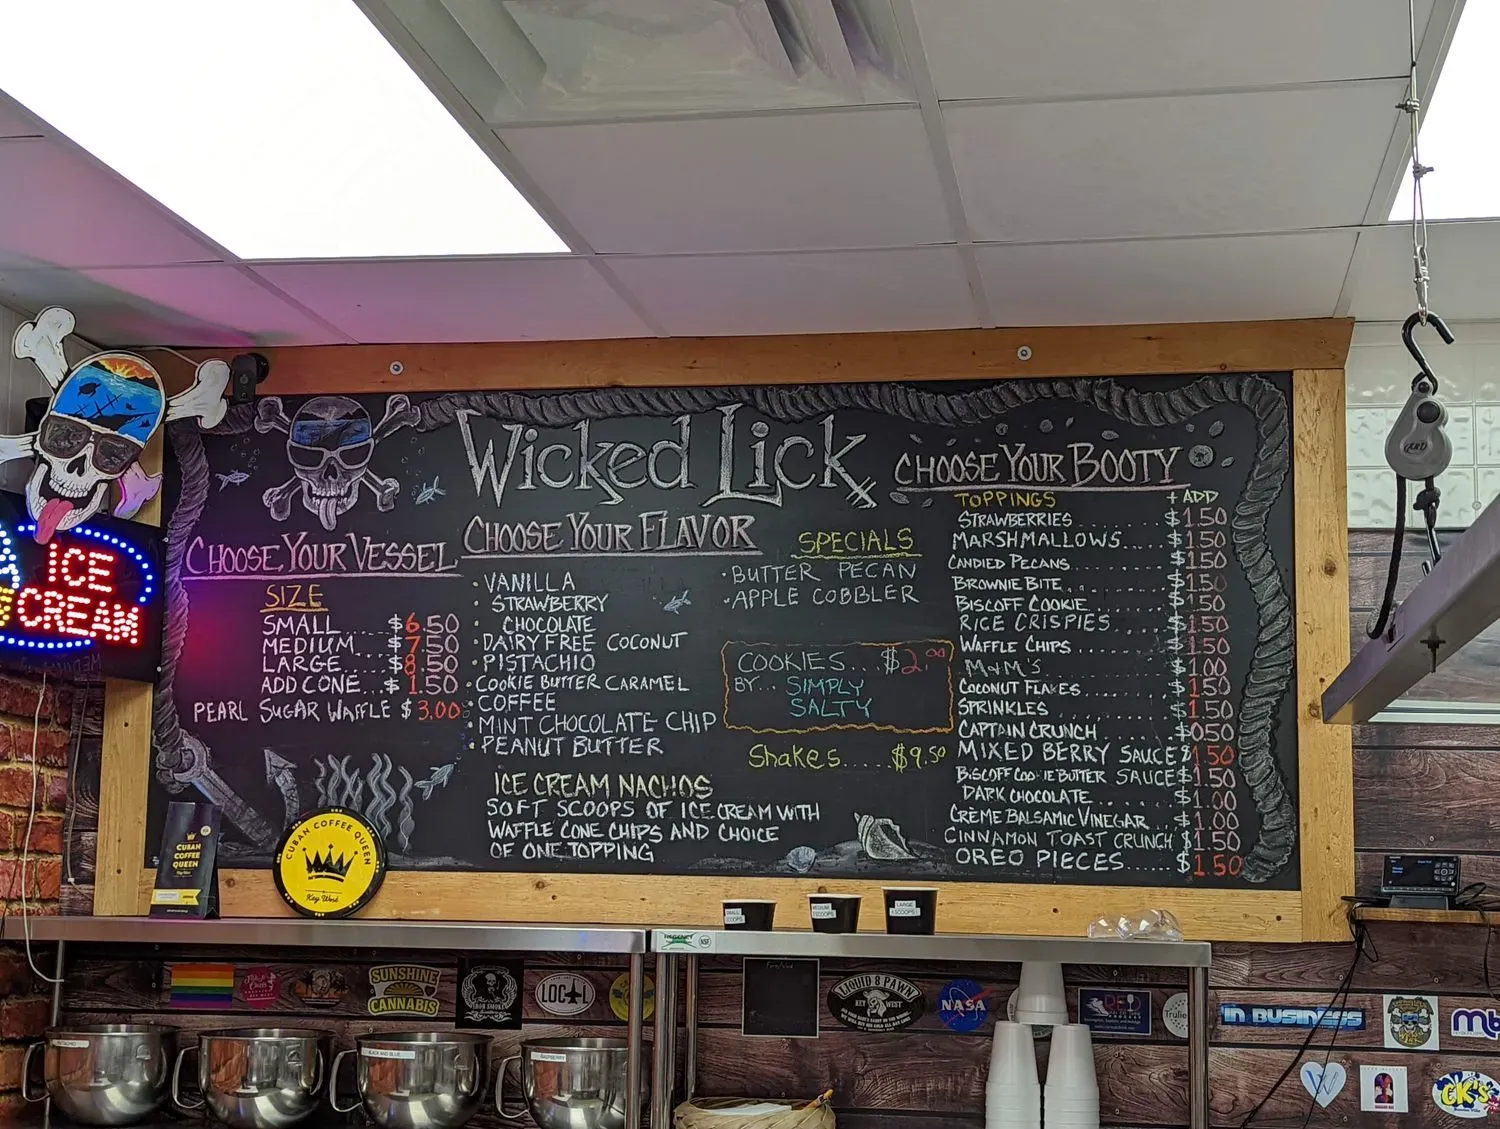 Wicked Lick
CHOOSE YOUR VESSEL
SIZE
SMALL....$6.50
MEDIUM...$7.50
LARGE....$8.50
ADD CONE...$1.50
PEARL SUGAR WAFFLE $3.00
CHOOSE YOUR FLAVOR
· VANILLA
· STRAWBERRY
· CHOCOLATE
· DAIRY FREE COCONUT
· PISTACHIO
· COOKIE BUTTER CARAMEL
· COFFEE
· MINT CHOCOLATE CHIP
· PEANUT BUTTER
ICE CREAM NACHOS
SOFT SCOOPS OF ICE CREAM WITH
WAFFLE CONE CHIPS AND CHOICE
OF ONE TOPPING
SPECIALS
· BUTTER PECAN
· APPLE COBBLER
COOKIES...$2.00
BY... SIMPLY
SALTY
Shakes.....$9.50
CHOOSE YOUR BOOTY
TOPPINGS + ADD
STRAWBERRIES.......$1.50
MARSHMALLOWS....$1.50
CANDIED PECANS......$1.50
BROWNIE BITE.......$1.50
BISCOFF COOKIE......$1.50
RICE CRISPIES......$1.50
WAFFLE CHIPS.......$1.50
M&M'S.......$1.00
COCONUT FLAKES......$1.50
SPRINKLES.......$1.50
CAPTAIN CRUNCH....$0.50
MIXED BERRY SAUCE $1.50
BISCOFF COOKIE BUTTER SAUCE $1.50
DARK CHOCOLATE.....$1.00
CRÈME BALSAMIC VINEGAR..$1.00
CINNAMON TOAST CRUNCH $1.50
OREO PIECES.....$1.50
ICE
CREAM
CUBAN
COFFEE
QUEEN
CUBAN COFFEE QUEEN
Key West
SMALL
SCOOPS
MEDIUM
SCOOPS
LARGE
SCOOPS
REGENCY
NSF
ARD
SUNSHINE
CANNABIS
LOCAL
LIQUID 8 PAWN
KEY WEST
NASA
RED
Trulie
IN BUSINESS
mb
W
CK's
PISTACHIO
BLACK AND BLUE
RASPBERRY